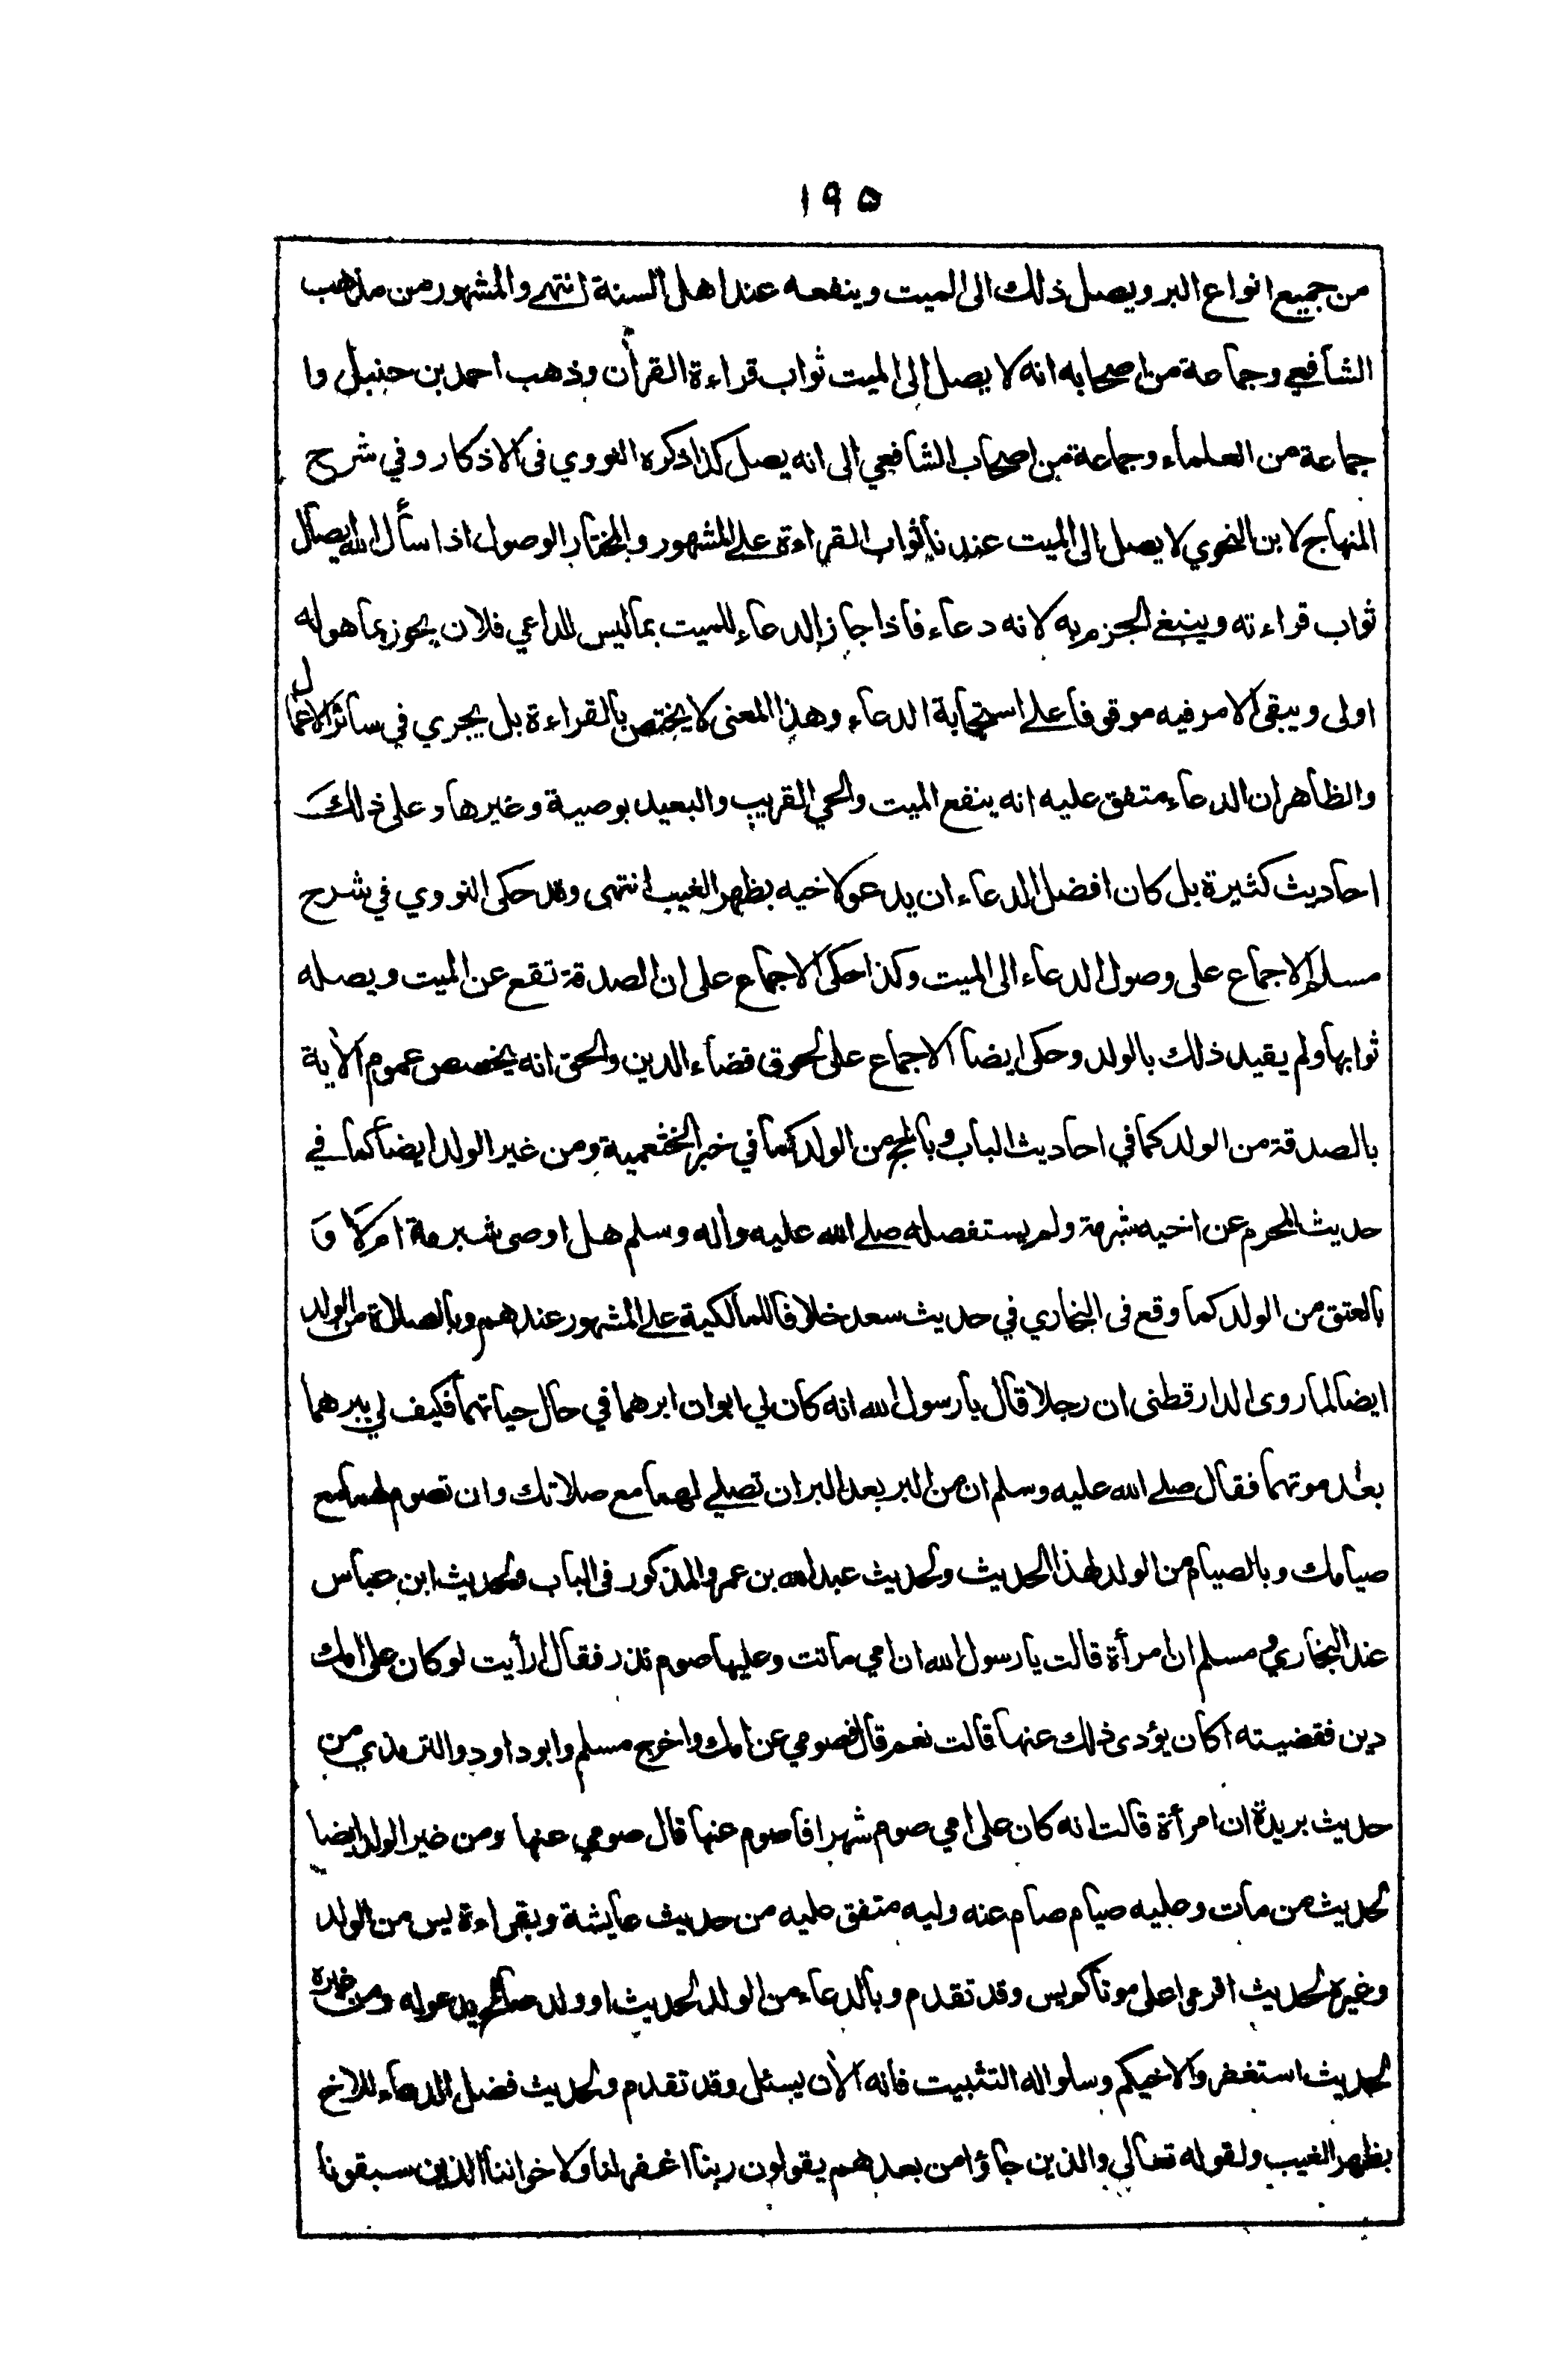 ۱۹۵
من جميع انواع البر ويصل ذلك الى الميت وينفعه عند اهل السنة انتهى والمشهور من مذهب
الشافعي وجماعة من اصحابه انه لا يصل الى الميت ثواب قراءة القرأن وذهب احمد بن حنبل وا
جماعة من العلماء وجماعة من اصحاب الشافعي الى انه يصل كذا ذكره النووي فى الاذكار وفي شرح
المنهاج لابن النحوي لا يصل الى الميت عندنا ثواب القراءة على المشهور والمختار الوصول اذا سأل الله ايصال
ثواب قراءته وينبغي الجزم به لانه دعاء فاذا جاز الدعاء للميت بما ليس للداعي فلان يجوز بما هو له
اولى ويبقى الامر فيه موقوفا على استجابة الدعاء وهذا المعنى لا يختص بالقراءة بل يجري في سائر الاعمال
والظاهر ان الدعاء متفق عليه انه ينفع الميت والحي القريب والبعيد بوصية وغيرها وعلى ذلك
احاديث كثيرة بل كان افضل الدعاء ان يدعو لاخيه بظهر الغيب انتهى وقد حكى النووي في شرح
مسلم الاجماع على وصول الدعاء الى الميت وكذا حكى الاجماع على ان الصدقة تقع عن الميت ويصله
ثوابها ولم يقيد ذلك بالولد وحكى ايضا الاجماع على لحوق قضاء الدين والحق انه يخصص عموم الأية
بالصدقة من الولد كما في احاديث الباب وبالحج من الولد كما في خبر الخثعمية ومن غير الولد ايضا كما في
حديث المحرم عن اخيه شبرمة ولم يستفصله صلے الله عليه وأله وسلم هل اوصى شبرمة ام لا و
بالعتق من الولد كما وقع فى البخاري في حديث سعد خلافا للمالكية على المشهور عندهم وبالصلاة من الولد
ايضا لما روى الدارقطنى ان رجلا قال يا رسول الله انه كان لي ابوان ابرهما في حال حياتهما فكيف لي ببرهما
بعد موتهما فقال صلے الله عليه وسلم ان من البر بعد البر ان تصلي لهما مع صلاتك وان تصوم لهما مع
صيامك وبالصيام من الولد لهذا الحديث ولحديث عبد الله بن عمرو المذكور فى الباب ولحديث ابن عباس
عند البخاري ومسلم ان امرأة قالت يا رسول الله ان امي ماتت وعليها صوم نذر فقال ارأيت لو كان على امك
دين فقضيته اكان يؤدى ذلك عنها قالت نعم قال فصومي عن امك واخرج مسلم وابو داود والترمذي من
حديث بريدة ان امرأة قالت انه كان على امي صوم شهر افاصوم عنها قال صومي عنها ومن غير الولد ايضا
لحديث من مات وعليه صيام صام عنه وليه متفق عليه من حديث عايشة وبقراءة يس من الولد
وغيره لحديث اقرءوا على موتاكم يس وقد تقدم وبالدعاء من الولد لحديث او ولد صالح يدعو له ومن غيره
لحديث استغفروا لاخيكم وسلوا له التثبيت فانه الأن يسئل وقد تقدم ولحديث فضل الدعاء للاخ
بظهر الغيب ولقوله تعالى والذين جاؤا من بعدهم يقولون ربنا اغفر لنا ولاخواننا الذين سبقونا